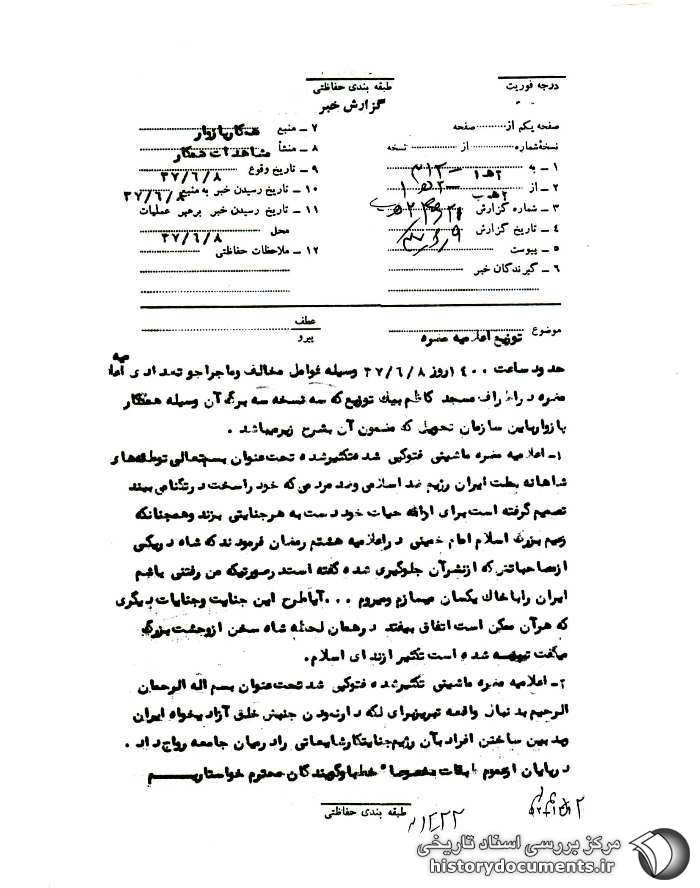 درجه فوریت
طبقه بندی حفاظتی
گزارش خبر
صفحه یکم از........ صفحه
نسخهٔ شماره ........ از ........ نسخه
۱ ـ به
۲ ـ از
۳ ـ شماره گزارش
۴ ـ تاریخ گزارش
۵ ـ پیوست
۶ ـ گیرندگان خبر
۷ ـ منبع همکار بازوار
۸ ـ منشأ مشاهدات همکار
۹ ـ تاریخ وقوع ۳۷/۶/۸
۱۰ ـ تاریخ رسیدن خبر به منبع ۳۷/۶/۸
۱۱ ـ تاریخ رسیدن خبر برهبر عملیات
محل ۳۷/۶/۸
۱۲ ـ ملاحظات حفاظتی
موضوع توزیع اعلامیه مضره
عطف
پیرو
حدود ساعت ۱۴۰۰ روز ۳۷/۶/۸ وسیله عوامل مخالف و ماجراجو تعدادی اعلامیه
مضره در اطراف مسجد کاظم بیک توزیع که سه نسخه سه برگی آن وسیله همکار
بازوار باین سازمان تحویل که مضمون آن بشرح زیر میباشد .
۱ـ اعلامیه مضره ماشینی فتوکپی شده تکثیر شده تحت عنوان بسمتعالی توطئه های
شاهانه بملت ایران رژیم ضد اسلامی و ضد مردمی که خود را سخت در تنگنا می بیند
تصمیم گرفته است برای ادامه حیات خود دست به هر جنایتی بزند و همچنانکه
زعیم بزرگ اسلام امام خمینی در اعلامیه هشتم رمضان فرمودند که شاه در یکی
از مصاحباتش که از نشر آن جلوگیری شده گفته است در صورتیکه من رفتنی باشم
ایران را با خاک یکسان میسازم و میروم ... آیا طرح این جنایت و جنایات دیگری
که هر آن ممکن است اتفاق بیفتد در همان لحظه شاه سخن از وحشت بزرگ
میگفت تهیه شده است تکثیر از ندای اسلام.
۲ـ اعلامیه مضره ماشینی تکثیر شده فتوکپی شده تحت عنوان بسم اله الرحمان
الرحیم بدنبال واقعه تبریز برای لکه دار نمودن جنبش خلق آزادیخواه ایران
و بدبین ساختن افراد بآن رژیم جنایتکار شایعاتی را در میان جامعه رواج داد .
در پایان از عموم طبقات مخصوصا" خطبا و گویندگان محترم خواستاریم
طبقه بندی حفاظتی
مرکز بررسی اسناد تاریخی
historydocuments.ir